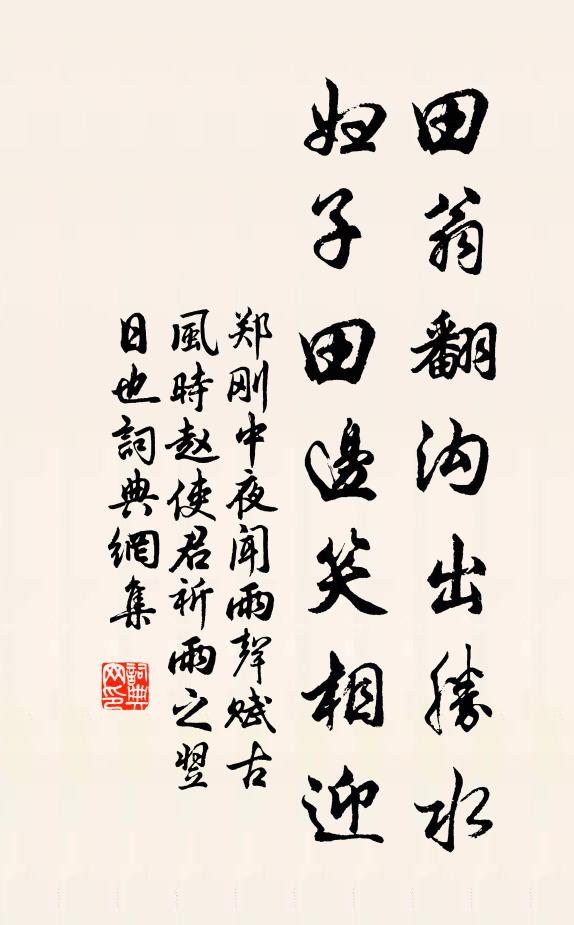 田翁翻沟出勝水
妇子田邊笑相迎
郑刚中夜闻雨聲赋古
風時赵使君祈雨之翌
日也詞典網集
詞典
网印